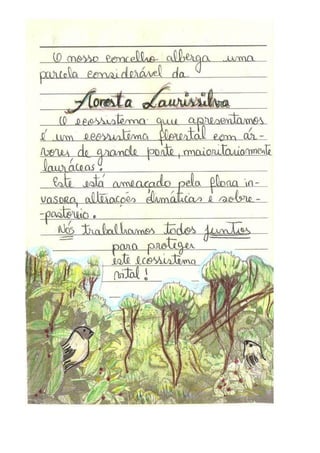 O nosso concelho alberga uma
parcela considerável da
Floresta Laurissilva
O ecossistema que apresentamos
é um ecossistema florestal com ár-
vores de grande porte, maioritariamente
lauráceas.
Este está ameaçado pela flora in-
vasora, alterações climáticas e sobre-
-pastoreio.
Nós trabalhamos todos juntos
para proteger
este ecossistema
vital!